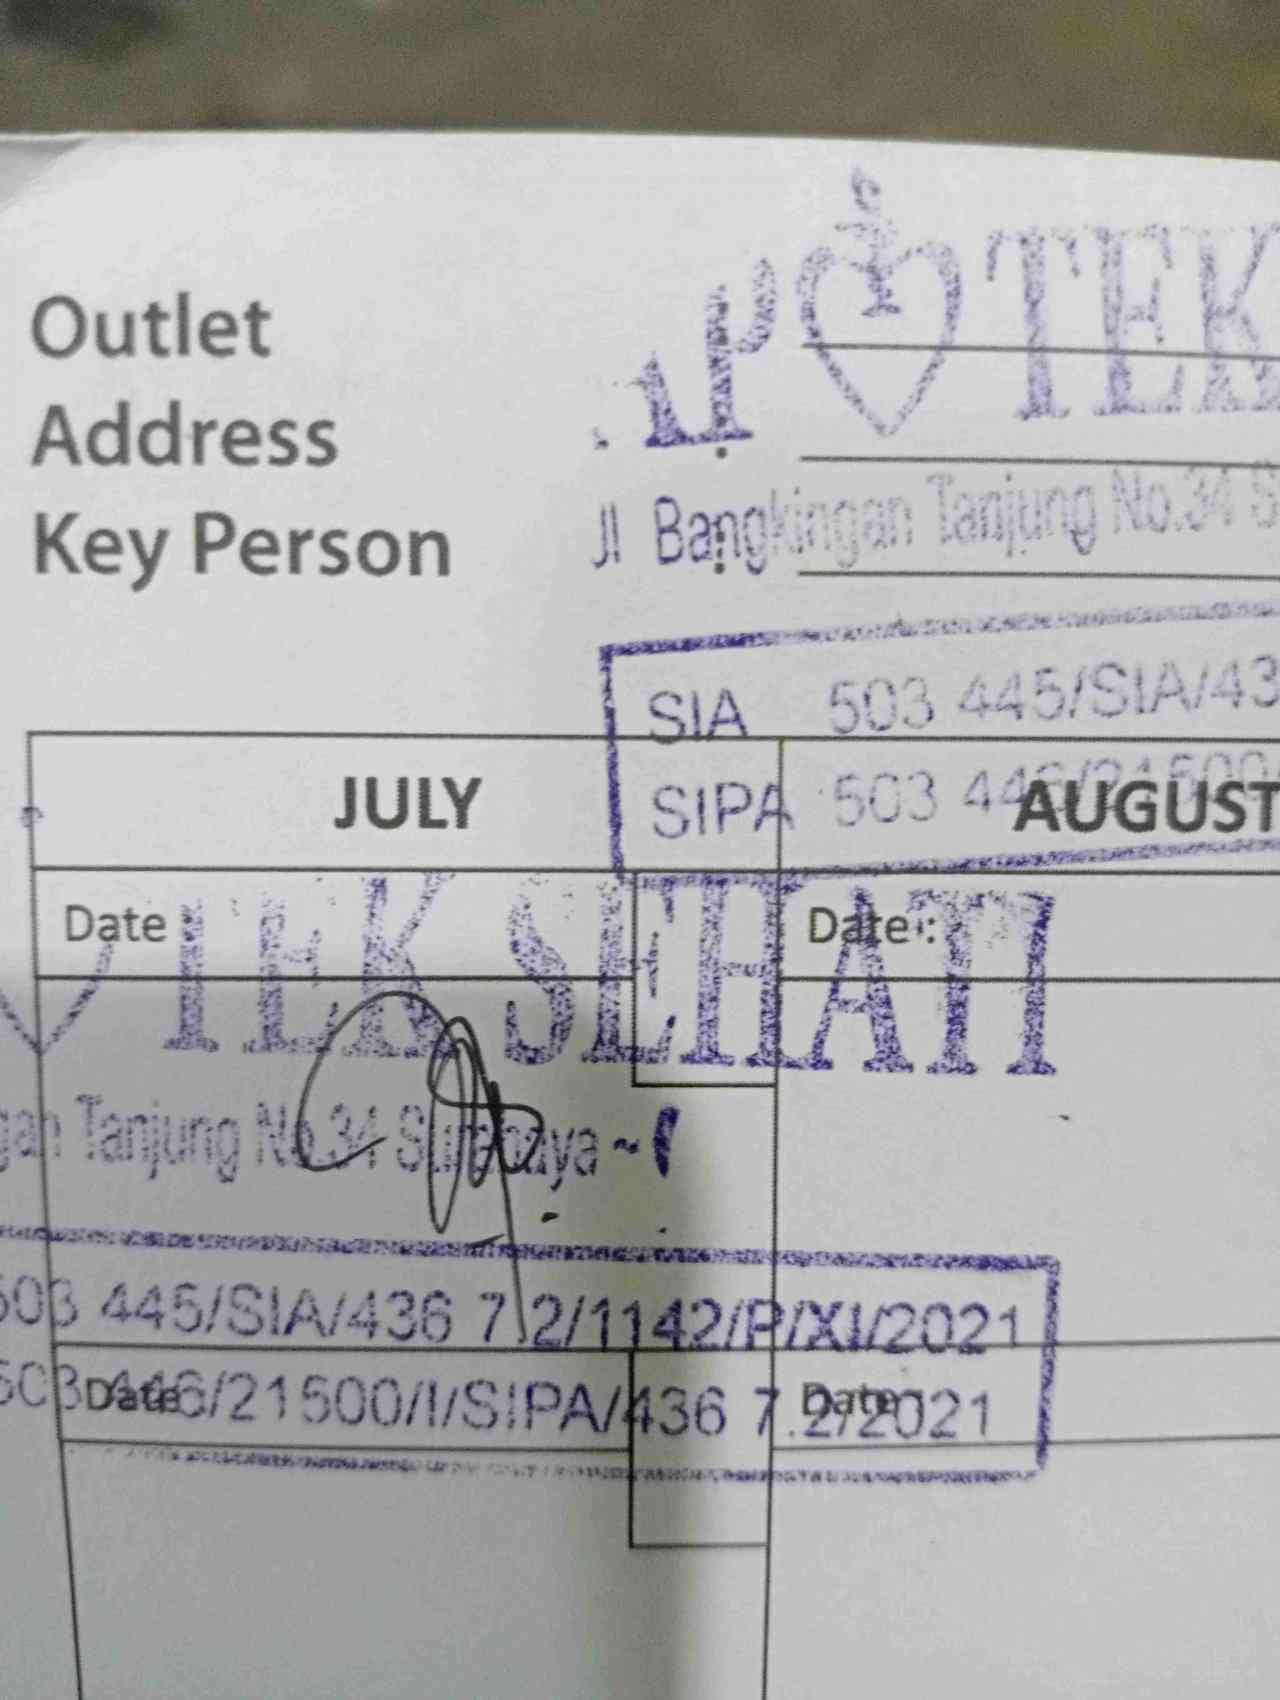 Outlet
Address :
Key Person :
APOTEK
Jl Bangkingan Tanjung No.34 S
SIA 503 445/SIA/43
SIPA 503 446/21500/
JULY AUGUST
Date Date :
TEK SEHATI
gan Tanjung No.34 Surabaya
503 445/SIA/436 7.2/1142/P/XI/2021
503 446/21500/I/SIPA/436 7.2/2021
Date Date